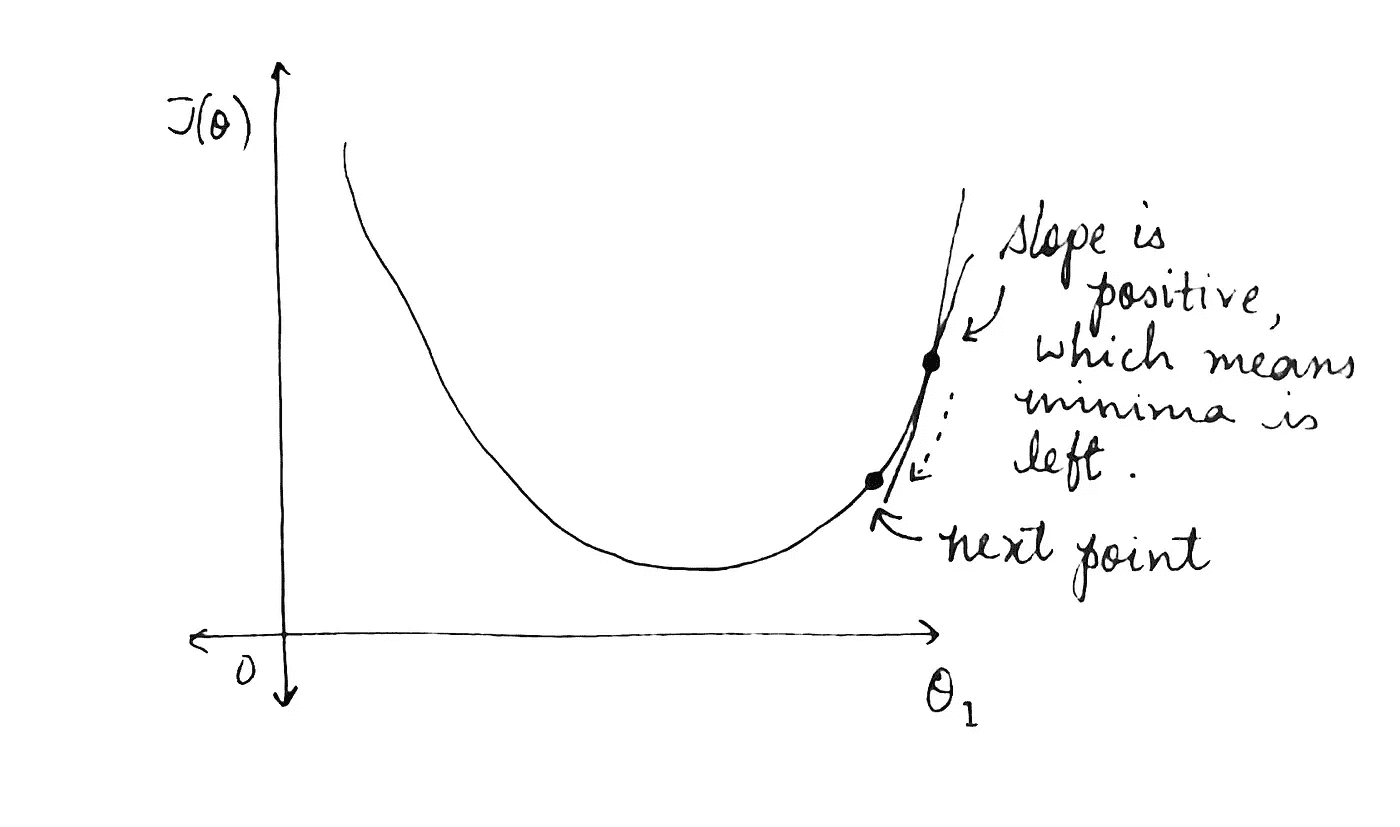 J(θ)
slope is
positive,
which means
minima is
left.
next point
0
θ₁